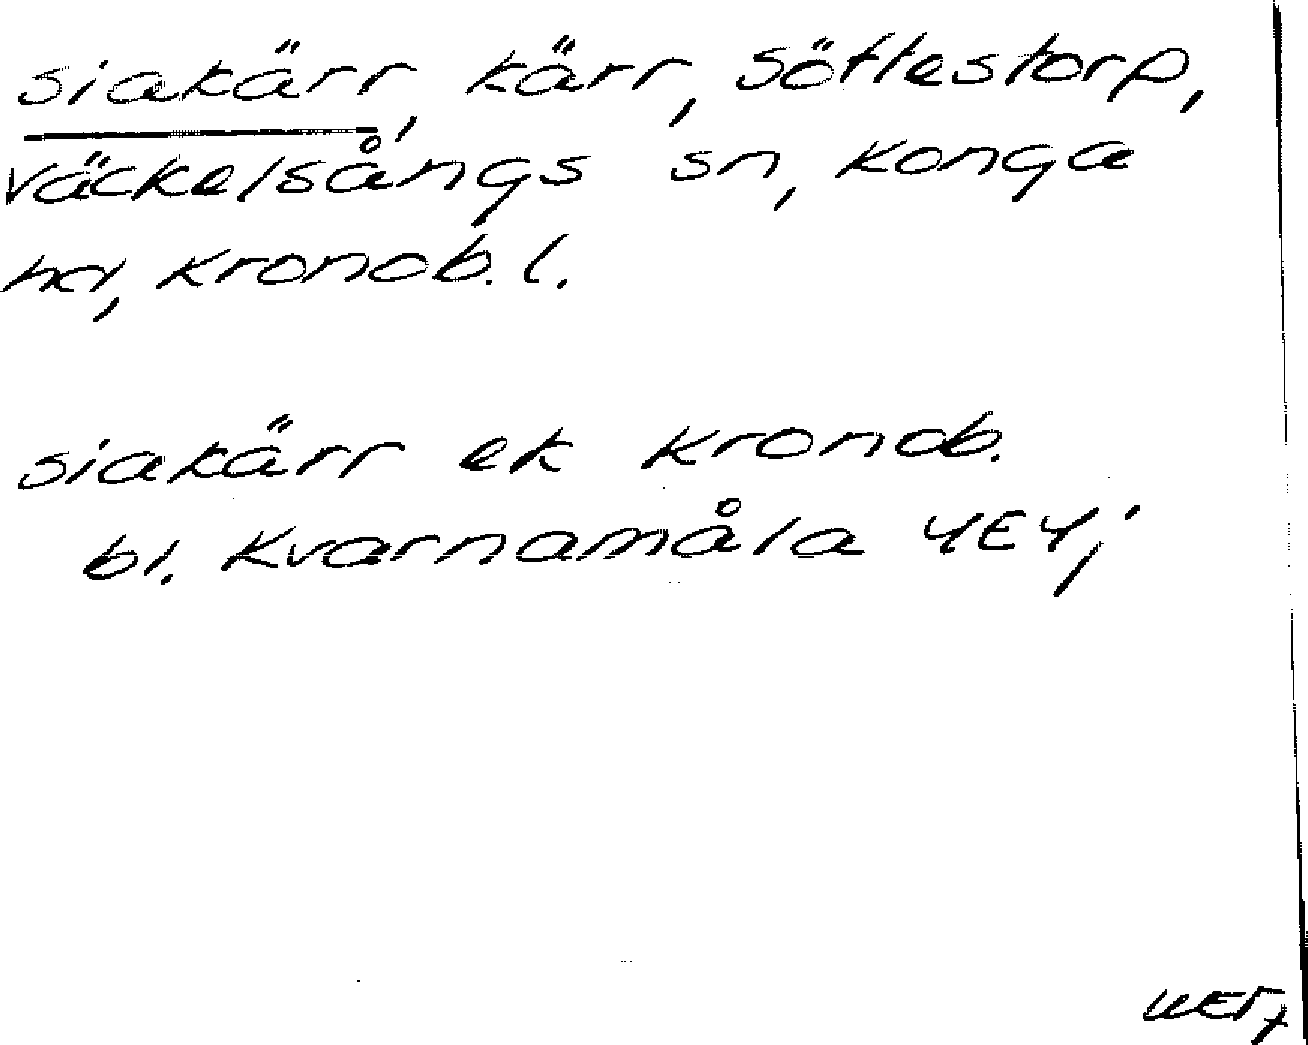 siakärr, kärr, Söftestorp,
Väckelsångs sn, Konga
hd, Kronob. l.
siakärr ek Kronob.
bl. Kvarnamåla 4E4,'